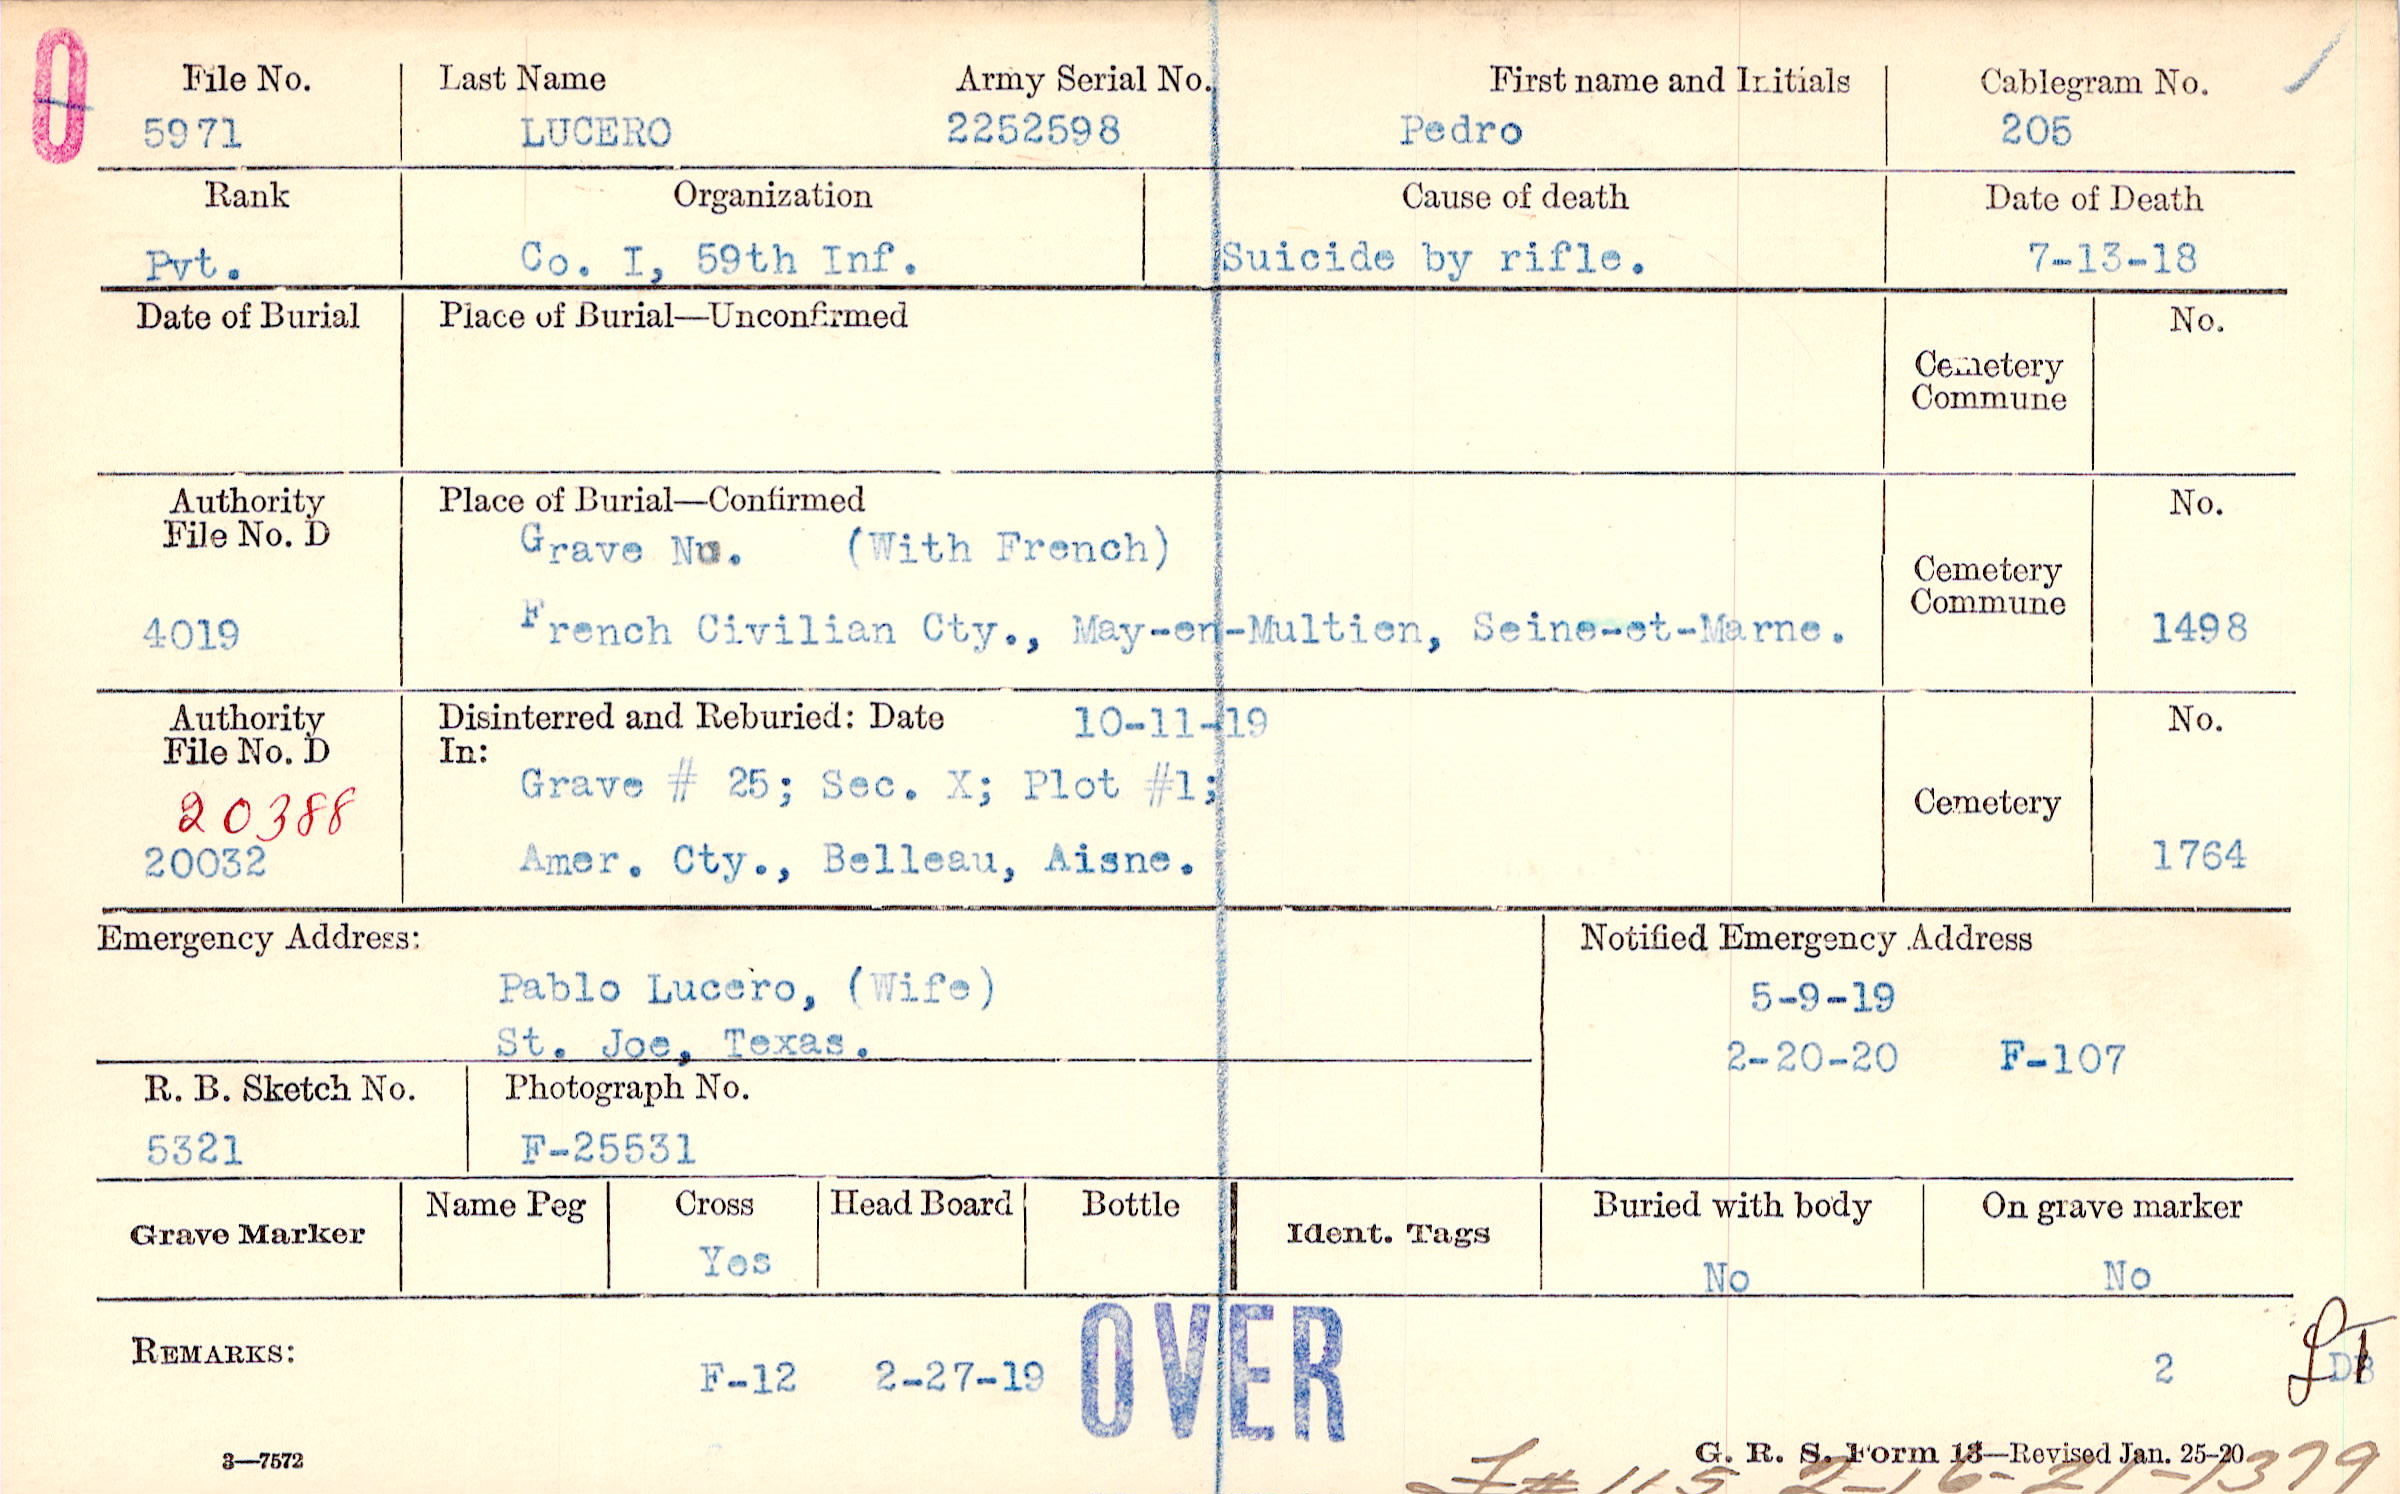 0
File No. Last Name Army Serial No. First name and Initials Cablegram No.
5971 LUCERO 2252598 Pedro 205
Rank Organization Cause of death Date of Death
Pvt. Co. I, 59th Inf. Suicide by rifle. 7-13-18
Date of Burial Place of Burial—Unconfirmed No.
Cemetery
Commune
Authority Place of Burial—Confirmed No.
File No. D
Grave No. (With French)
Cemetery
Commune
4019 French Civilian Cty., May-en-Multien, Seine-et-Marne. 1498
Authority Disinterred and Reburied: Date 10-11-19 No.
File No. D In:
20388 Grave # 25; Sec. X; Plot #1;
Cemetery
20032 Amer. Cty., Belleau, Aisne. 1764
Emergency Address: Notified Emergency Address
Pablo Lucero, (Wife) 5-9-19
St. Joe, Texas. 2-20-20 F-107
R. B. Sketch No. Photograph No.
5321 F-25531
Grave Marker Name Peg Cross Head Board Bottle Ident. Tags Buried with body On grave marker
Yes No No
REMARKS: F-12 2-27-19 OVER 2 DB
3—7572 G. R. S. Form 13—Revised Jan. 25-20
2-16-21-1379